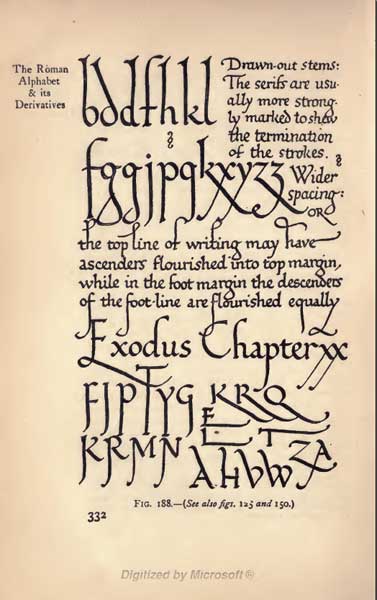 The Roman
Alphabet
& its
Derivatives
bddfhkl
Drawn-out stems:
The serifs are usu-
ally more strong-
ly marked to show
the termination
of the strokes.
fggjpqkxyzz
Wider
spacing:
OR
the top line of writing may have
ascenders flourished into top margin,
while in the foot margin the descenders
of the foot-line are flourished equally
Exodus Chapter xx
FJPTYG KRQ
E
KRMN L T ZA
AHVW
FIG. 188.—(See also figs. 125 and 150.)
332
Digitized by Microsoft ®